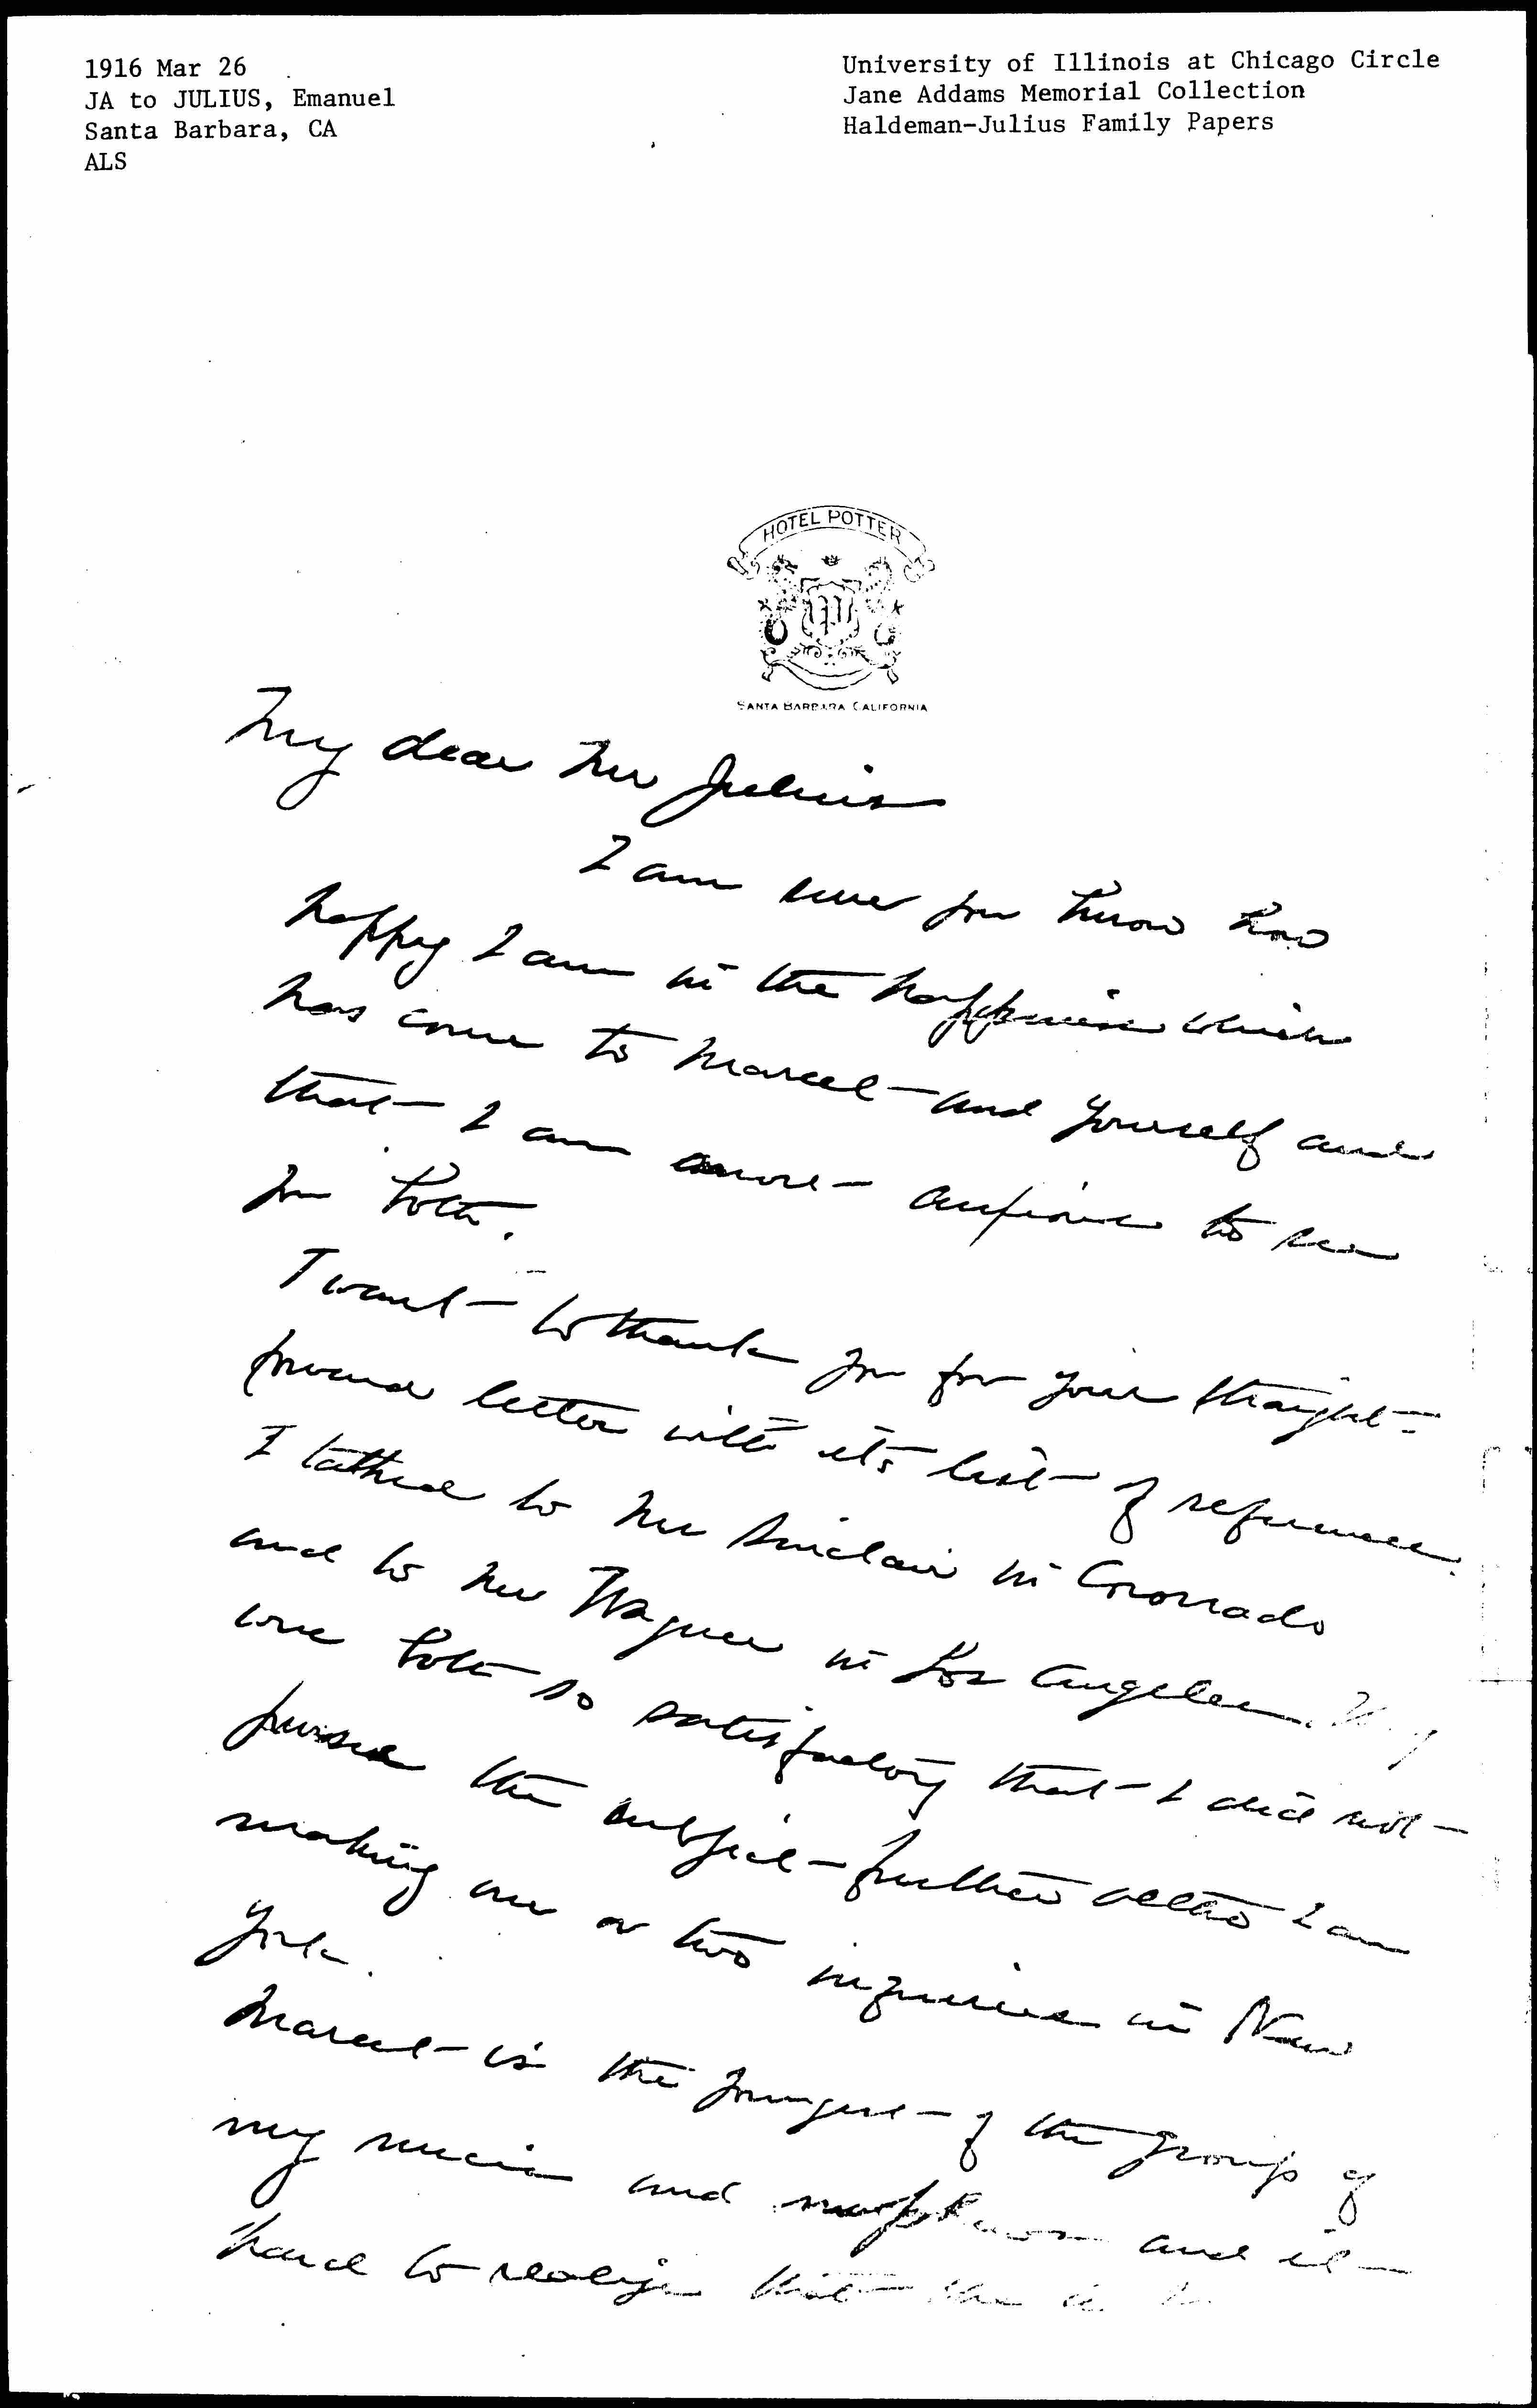 1916 Mar 26
JA to JULIUS, Emanuel
Santa Barbara, CA
ALS
University of Illinois at Chicago Circle
Jane Addams Memorial Collection
Haldeman-Julius Family Papers
HOTEL POTTER
SANTA BARBARA CALIFORNIA
My dear Mr Julius
I am sure you know how
happy I am in the happiness which
has come to Marcet and yourself and
that I am anxious to see
you both.
I want to thank you for your straight-
forward letter with its list of references.
I talked to Mr Sinclair in Coronado
and to Mr Wagner in Los Angeles. They
were both so satisfactory that I did not
pursue the subject further altho I am
making one or two inquiries in New
York.
Marcet is the youngest of the group of
my nieces and nephews and it
hard to realize that she